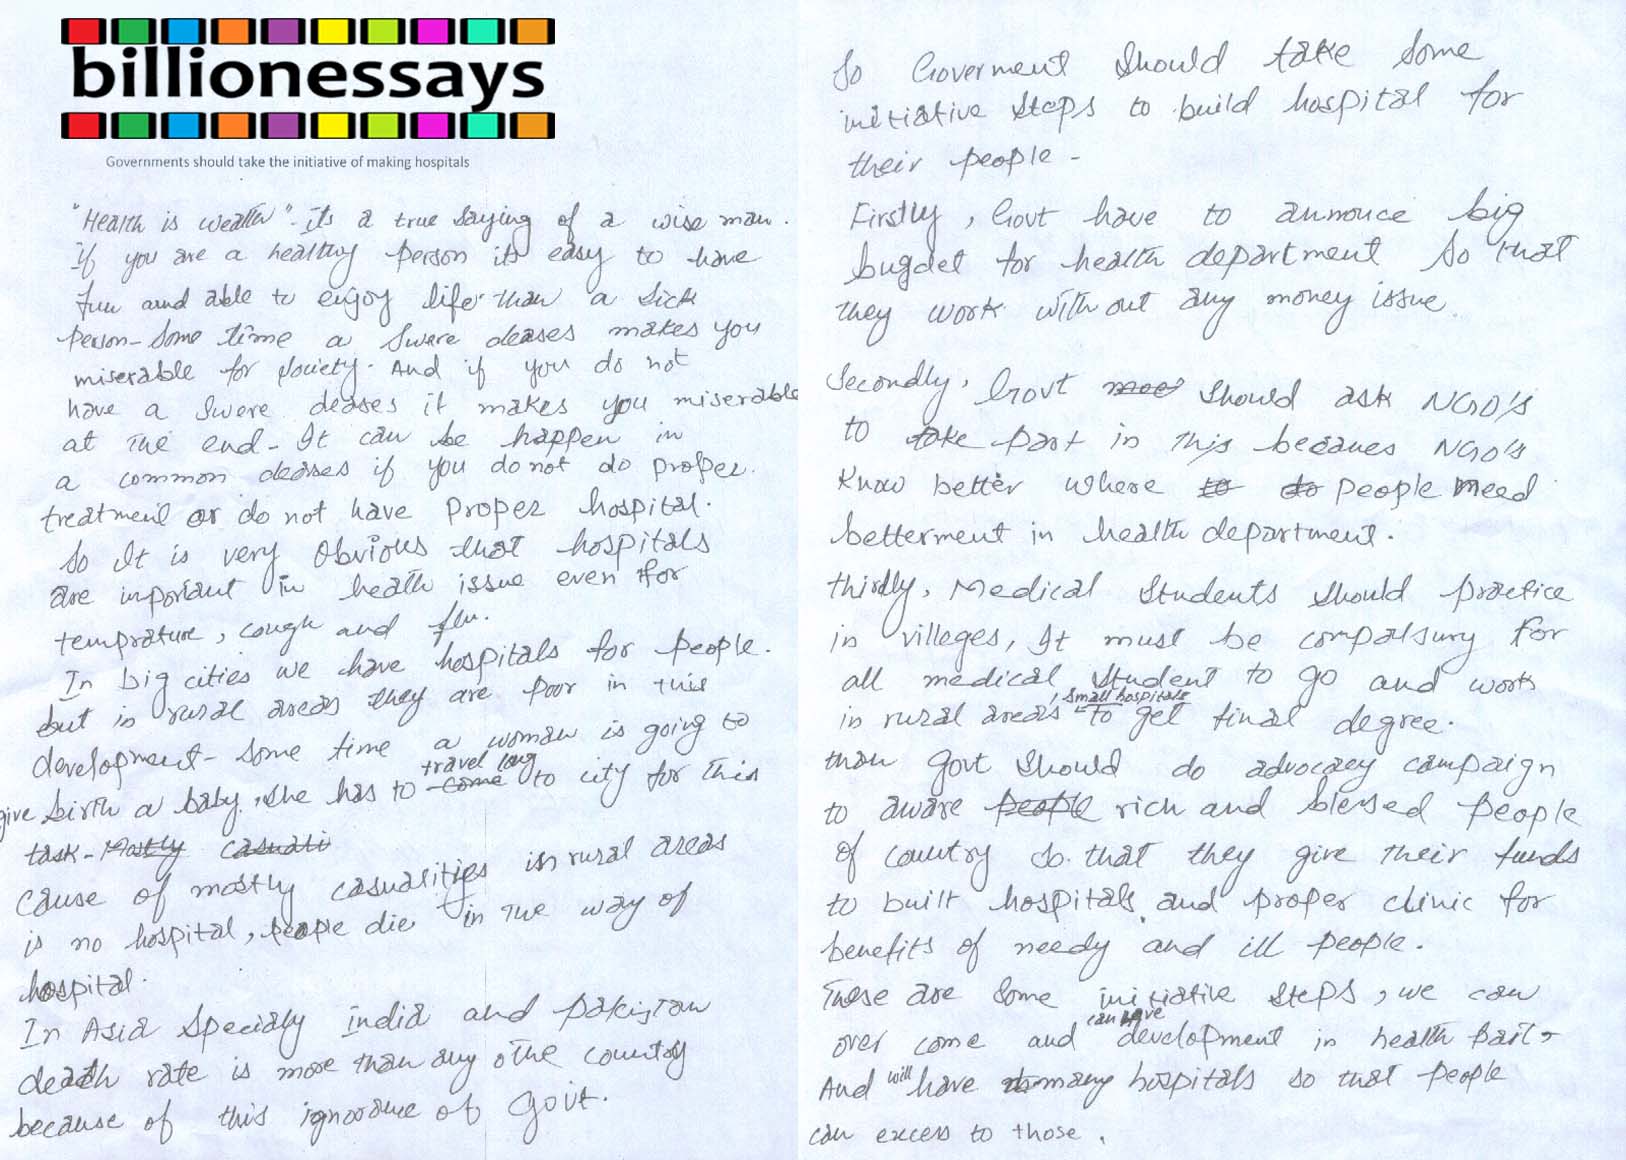 billionessays
Governments should take the initiative of making hospitals
"Health is wealth"- its a true saying of a wise man.
if you are a healthy person its easy to have
fun and able to enjoy life than a sick
person- some time a Swere deases makes you
miserable for society. And if you do not
have a Swere deases it makes you miserable
at the end- It can be happen in
a common deases if you do not do proper
treatment or do not have proper hospital.
So It is very obvious that hospitals
are inportant in health issue even for
temprature, cough and flu.
In big cities we have hospitals for people.
but in rural areas they are poor in this
development- some time a woman is going to
give birth a baby. she has to come travel long to city for this
task- Mostly casuati
cause of mostly casualities in rural areas
is no hospital, people die in the way of
hospital.
In Asia Specially india and pakistan
death rate is more than any othe country
because of this ignorance of govt.
So Goverment should take some
initiative steps to build hospital for
their people -
Firstly, Govt have to annouce big
bugdet for health department so that
they work without any money issue.
Secondly, Govt should ask NGO's
to take part in this becaues NGO's
know better where to do people need
betterment in health department.
thirdly, Medical students should practice
in villeges, It must be compalsury for
all medical student to go and work
in rural areas, small hospitals to get final degree.
than govt should do advocacy campaign
to aware people rich and blessed people
of country so that they give their funds
to built hospitals and proper clinic for
benefits of needy and ill people.
These are some initiative steps, we can
over come and can have development in health part-
And will have many hospitals so that people
can excess to those.